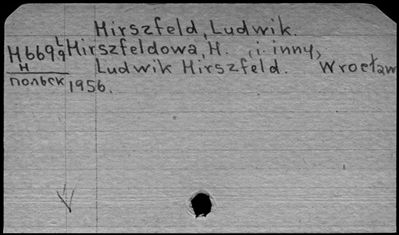 Hirszfeld, Ludwik.
H669 L/9 Hirszfeldowa, H. , i inny,
H Ludwik Hirszfeld. Wrocław
польск 1956.